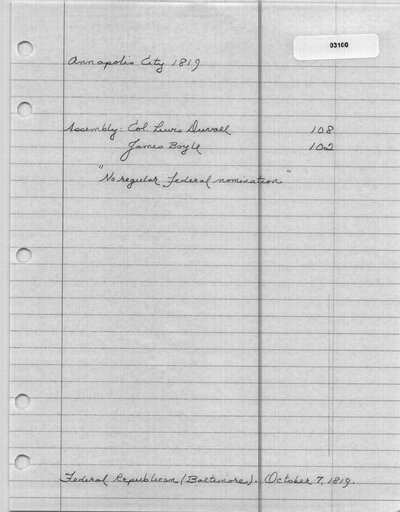 03100
Annapolis City 1819
Assembly: Col. Lewis Duvall 108
James Boyle 102
"No regular Federal nomination"
Federal Republican (Baltimore). October 7, 1819.